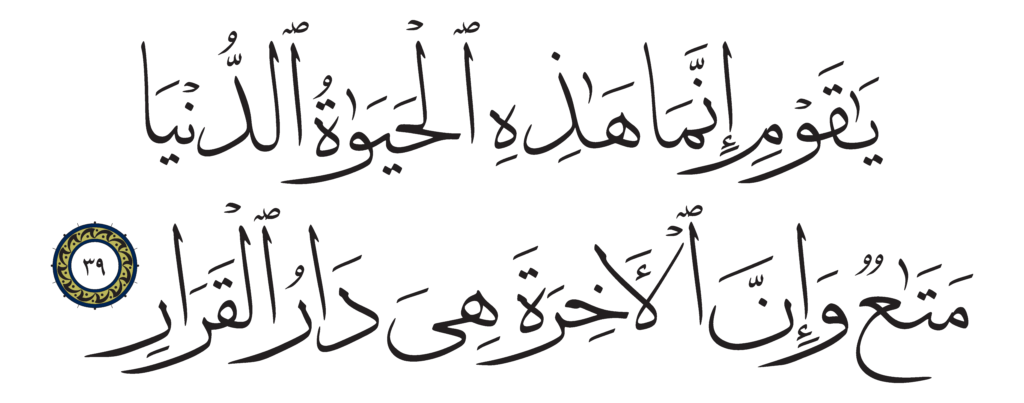 يَـٰقَوْمِ إِنَّمَا هَـٰذِهِ ٱلْحَيَوٰةُ ٱلدُّنْيَا
مَتَـٰعٌ وَإِنَّ ٱلْـَٔاخِرَةَ هِىَ دَارُ ٱلْقَرَارِ ٣٩